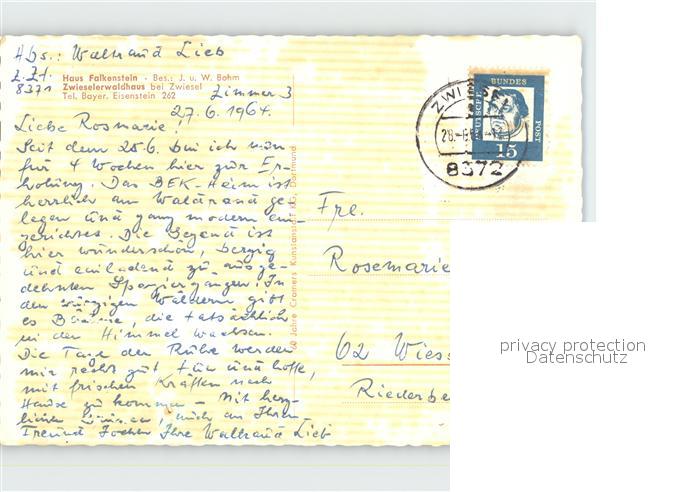 Abs.: Waltraud Lieb
z. Zt. Haus Falkenstein - Bes.: J. u. W. Bohm
8371 Zwieselerwaldhaus bei Zwiesel
Tel. Bayer. Eisenstein 262
Zimmer 3
27.6.1964.
Liebe Rosmarie!
Seit dem 25.6. bin ich nun
für 4 Wochen hier zur Er-
holung. Das BEK-Heim ist
herrlich am Waldrand ge-
legen und ganz modern ein-
gerichtet. Die Gegend ist
hier wunderschön, bergig
und einladend zu ausge-
dehnten Spaziergängen. In
den würzigen Wäldern gibt
es Bäume, die tatsächlich
in den Himmel wachsen.
Die Tage der Ruhe werden
mir recht gut tun und hoffe,
mit frischen Kräften nach
Hause zu kommen - Mit herz-
lichen Grüssen, auch an Ihren
Freund Ihre Waltraud Lieb
60 Jahre Cramers Kunstanstalt KG, Dortmund
ZWIESEL
8372
DEUTSCHE BUNDES POST
15
Frl.
Rosemarie
62 Wiesb
Riederbe
privacy protection
Datenschutz